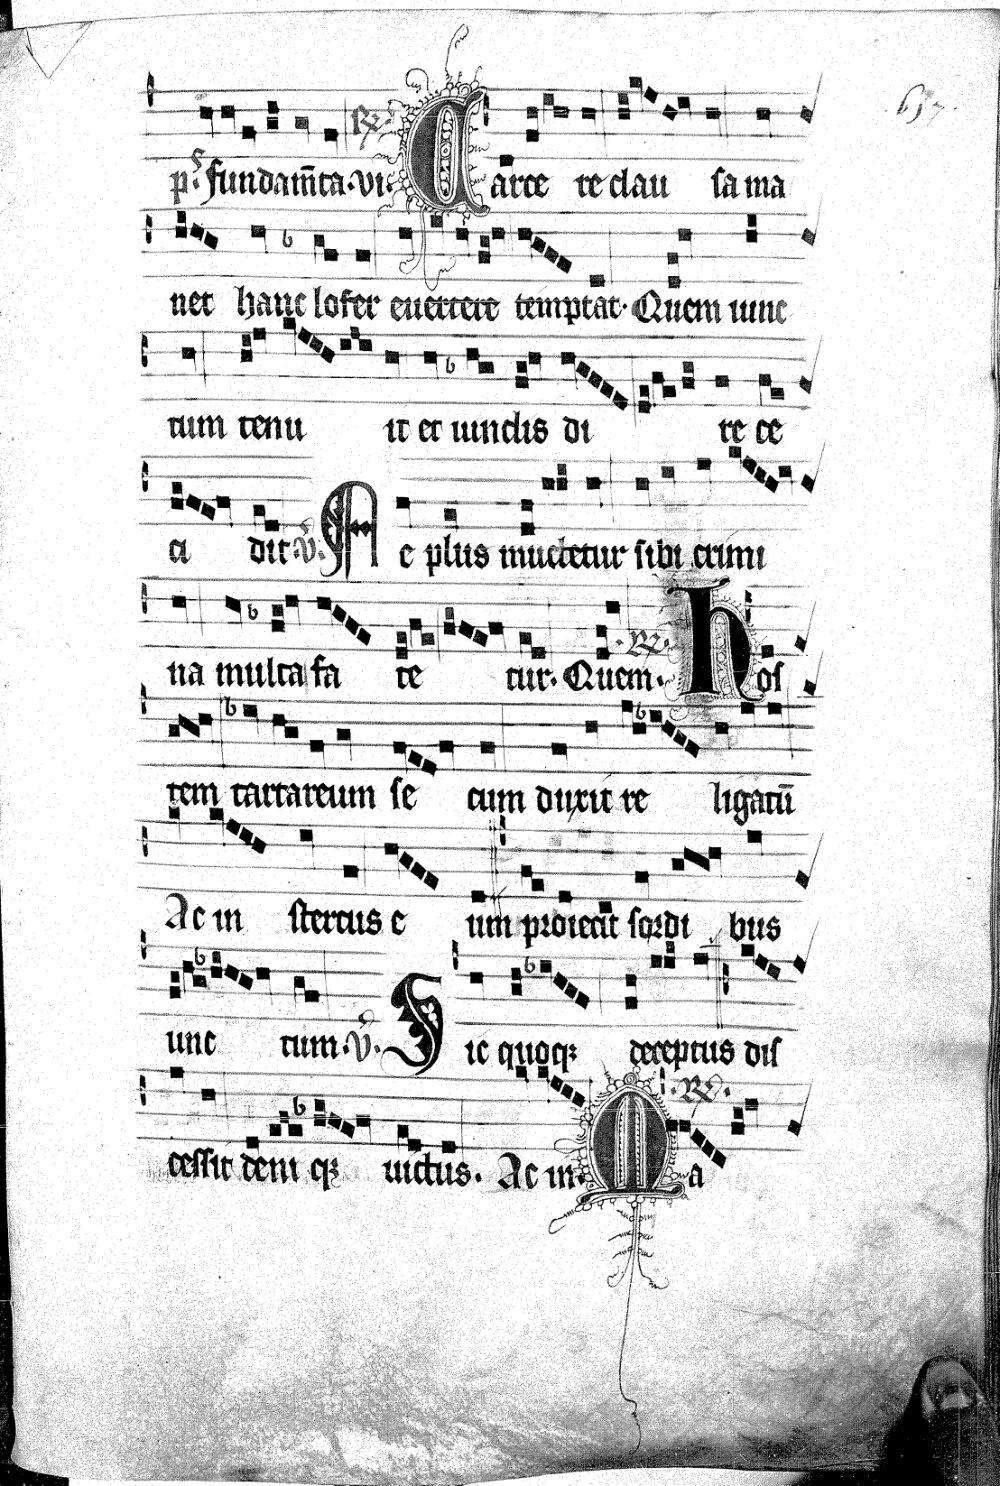 657
p̄s. fundam̄ta. vi. ℟ Carce re clau sa ma
net hanc lofer euertere temptat. Quem uinc
tum tenu it et uinclis di re ce
ci dit. ℣. Ne plus muctetur sibi crimi
na multa fa te tur. Quem. ℟. hos
tem tartareum se cum duxit re ligatū
Ac in stercus e um proiecit sordi bus
unc tum. ℣. Sic quoqꝫ deceptus dis
cessit deni qꝫ uictus. Ac in. ℟. Ma